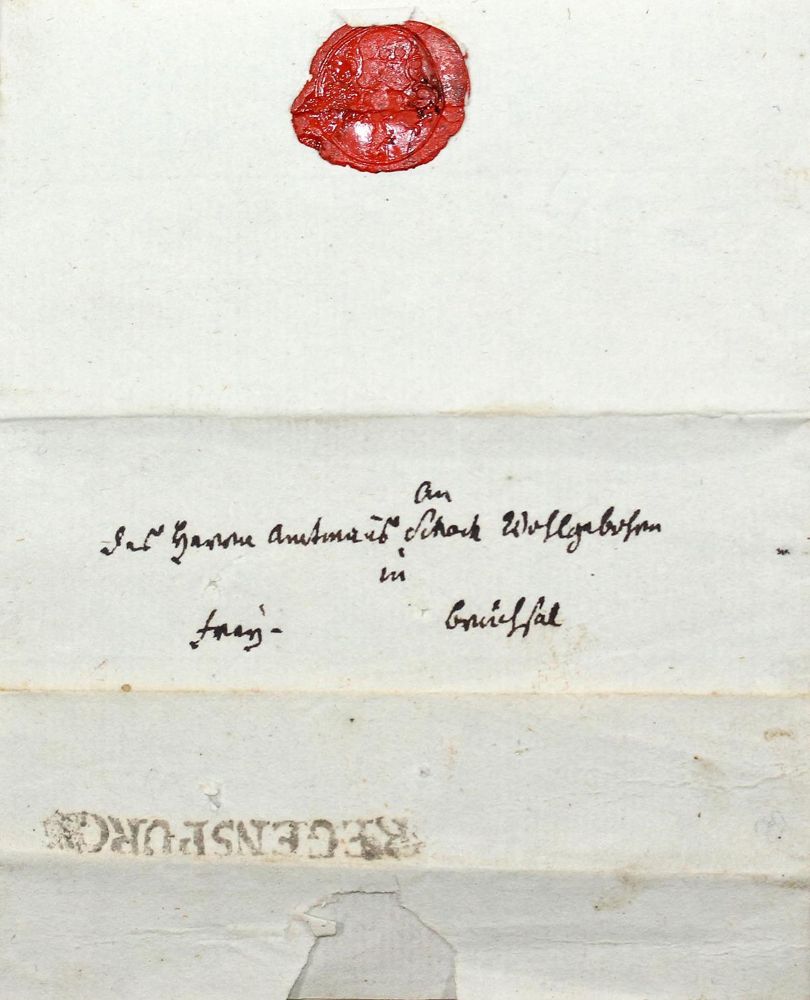 An
des Herrn Amtmanns Schoch Wohlgebohrn
in
frey- Bruchsal
REGENSPURG